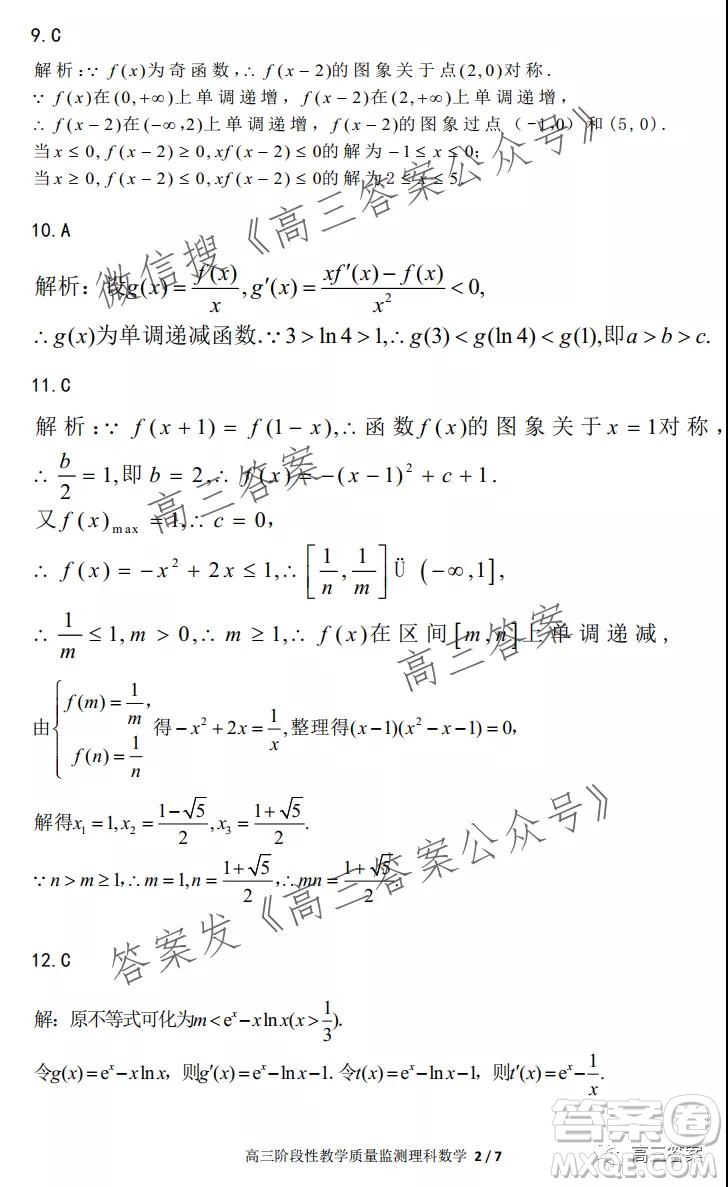 9.C
解析:∵ f(x)为奇函数,∴ f(x－2)的图象关于点(2,0)对称.
∵ f(x)在(0,+∞)上单调递增, f(x－2)在(2,+∞)上单调递增,
∴ f(x－2)在(－∞,2)上单调递增, f(x－2)的图象过点（－1,0）和(5,0).
当x ≤ 0, f(x－2) ≥ 0, xf(x－2) ≤ 0的解为－1 ≤ x ≤ 0;
当x ≥ 0, f(x－2) ≤ 0, xf(x－2) ≤ 0的解为2 ≤ x ≤ 5.
10.A
解析: 设g(x) = f(x)/x, g′(x) = (xf′(x) － f(x))/x² < 0,
∴ g(x)为单调递减函数.∵ 3 > ln 4 > 1,∴ g(3) < g(ln 4) < g(1),即a > b > c.
11.C
解析:∵ f(x+1) = f(1－x),∴ 函数f(x)的图象关于x = 1对称,
∴ b/2 = 1,即 b = 2,∴ f(x) = －(x－1)² + c + 1.
又f(x)max = 1,∴ c = 0,
∴ f(x) = －x² + 2x ≤ 1,∴ [1/n, 1/m] Ü (－∞,1],
∴ 1/m ≤ 1, m > 0,∴ m ≥ 1,∴ f(x)在区间[m,n]上单调递减,
由{f(m) = 1/m, f(n) = 1/n 得－x² + 2x = 1/x,整理得(x－1)(x²－x－1) = 0,
解得x₁ = 1, x₂ = (1－√5)/2, x₃ = (1+√5)/2.
∵ n > m ≥ 1,∴ m = 1, n = (1+√5)/2,∴ mn = (1+√5)/2.
12.C
解: 原不等式可化为m < eˣ－x ln x(x > 1/3).
令g(x) = eˣ－x ln x, 则g′(x) = eˣ－ln x－1. 令t(x) = eˣ－ln x－1, 则t′(x) = eˣ－1/x.
高三阶段性教学质量监测理科数学 2 / 7
微信搜《高三答案公众号》
高三答案
高三答案
答案发《高三答案公众号》
答案卷
高三答案
MXQE.COM